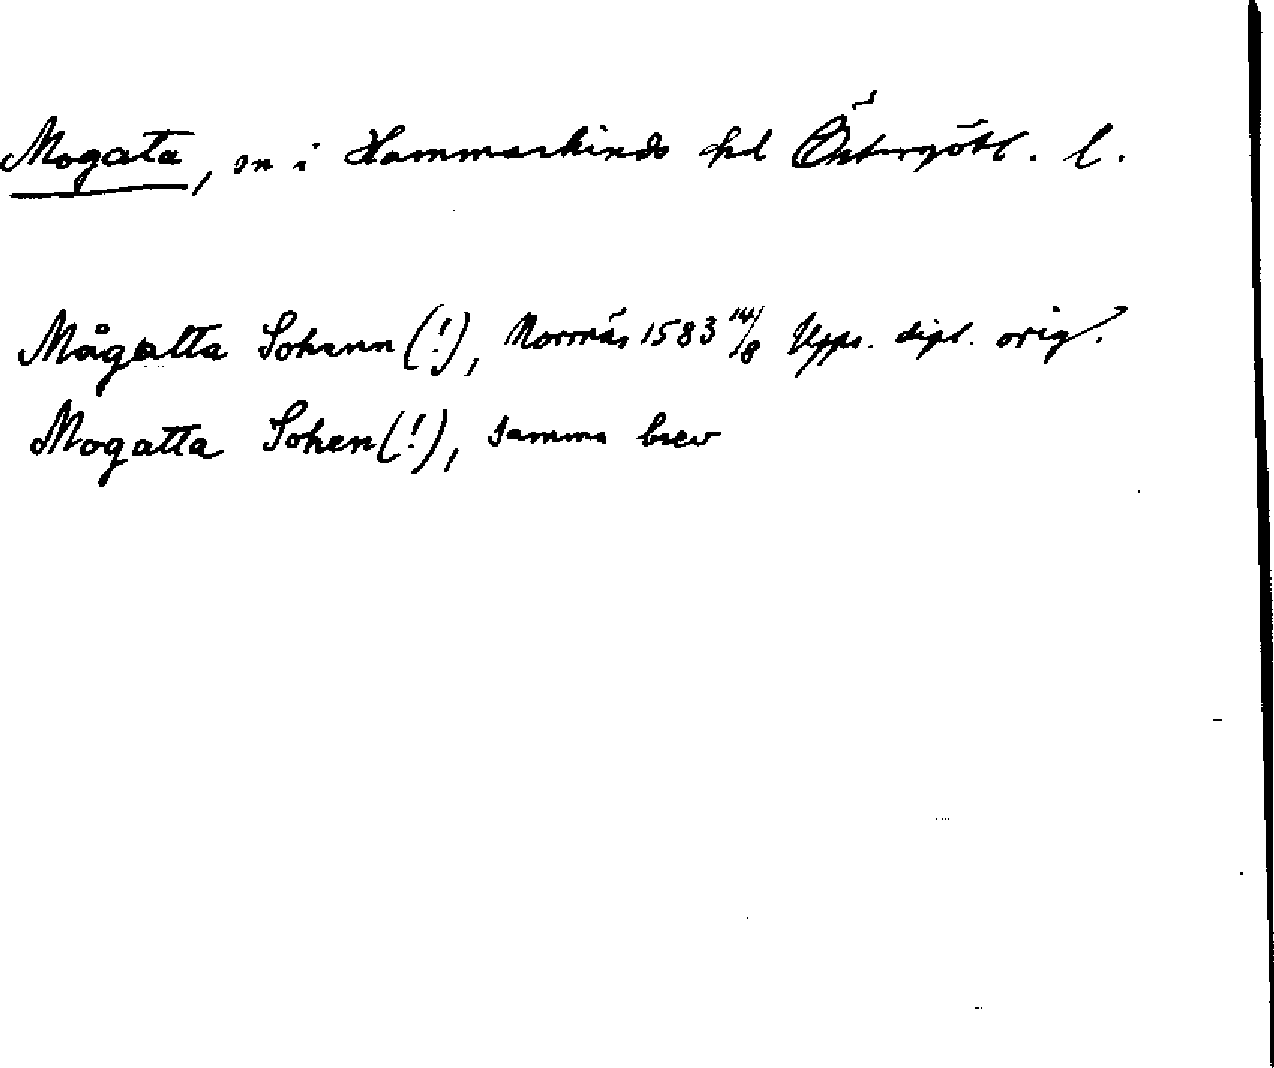 Mogata, sn i Hammarkinds hd Östergötl. l.
Mågatta Sohenn (!), Norrnäs 1583 14/8 Upps. dipl. orig.
Mogatta Sohen (!), samma brev